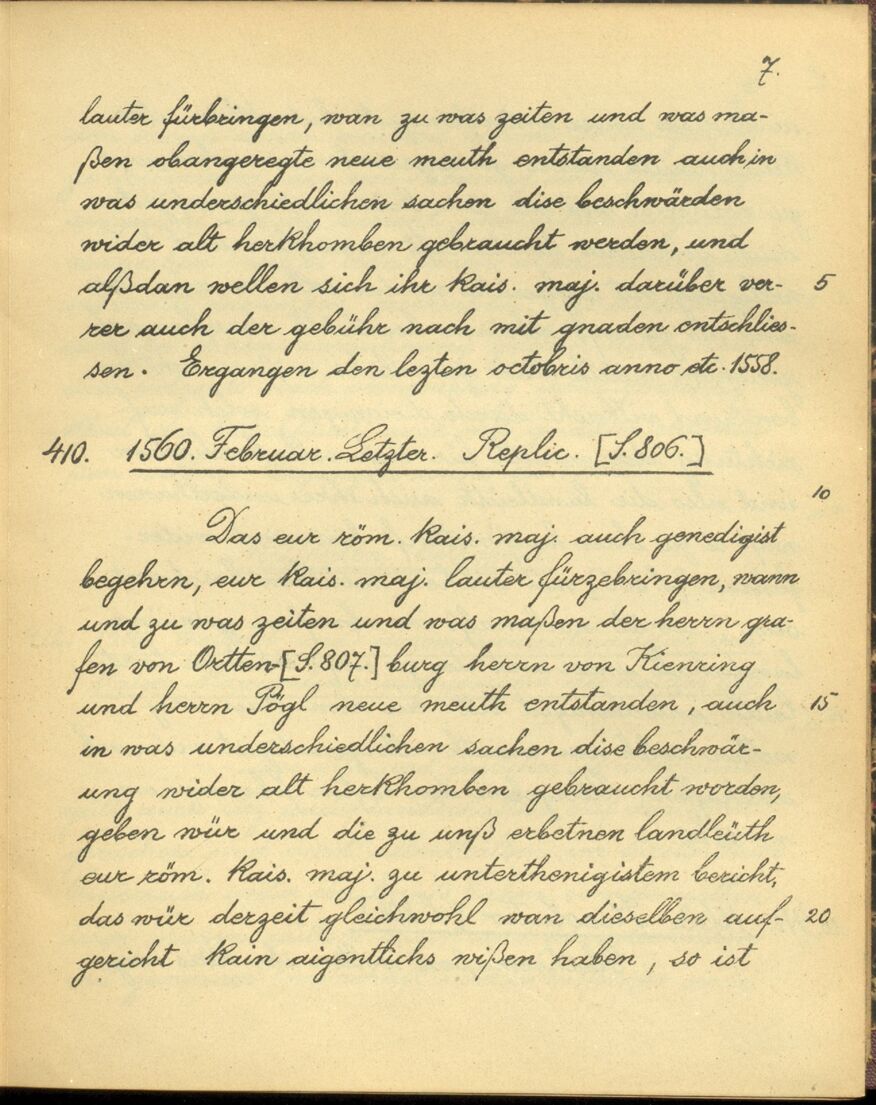 7.
lauter fürbringen, wan zu was zeiten und was ma-
ßen obangeregte neue meuth entstanden auch in
was underschiedlichen sachen dise beschwärden
wider alt herkhomben gebraucht werden, und
alßdan wellen sich ihr kais. maj. darüber ver- 5
rer auch der gebühr nach mit gnaden entschlies-
sen. Ergangen den lezten octobris anno etc. 1558.
410. 1560. Februar. Letzter. Replic. [S. 806.]
10
Das eur röm. kais. maj. auch genedigist
begehrn, eur kais. maj. lauter fürzebringen, wann
und zu was zeiten und was maßen der herrn gra-
fen von Ortten-[S. 807.] burg herrn von Kienring
und herrn Pögl neue meuth entstanden, auch 15
in was underschiedlichen sachen dise beschwär-
ung wider alt herkhomben gebraucht worden,
geben wür und die zu unß erbetnen landleüth
eur röm. kais. maj. zu unterthenigistem bericht,
das wür derzeit gleichwohl wan dieselben auf- 20
gericht kain aigentlichs wißen haben, so ist